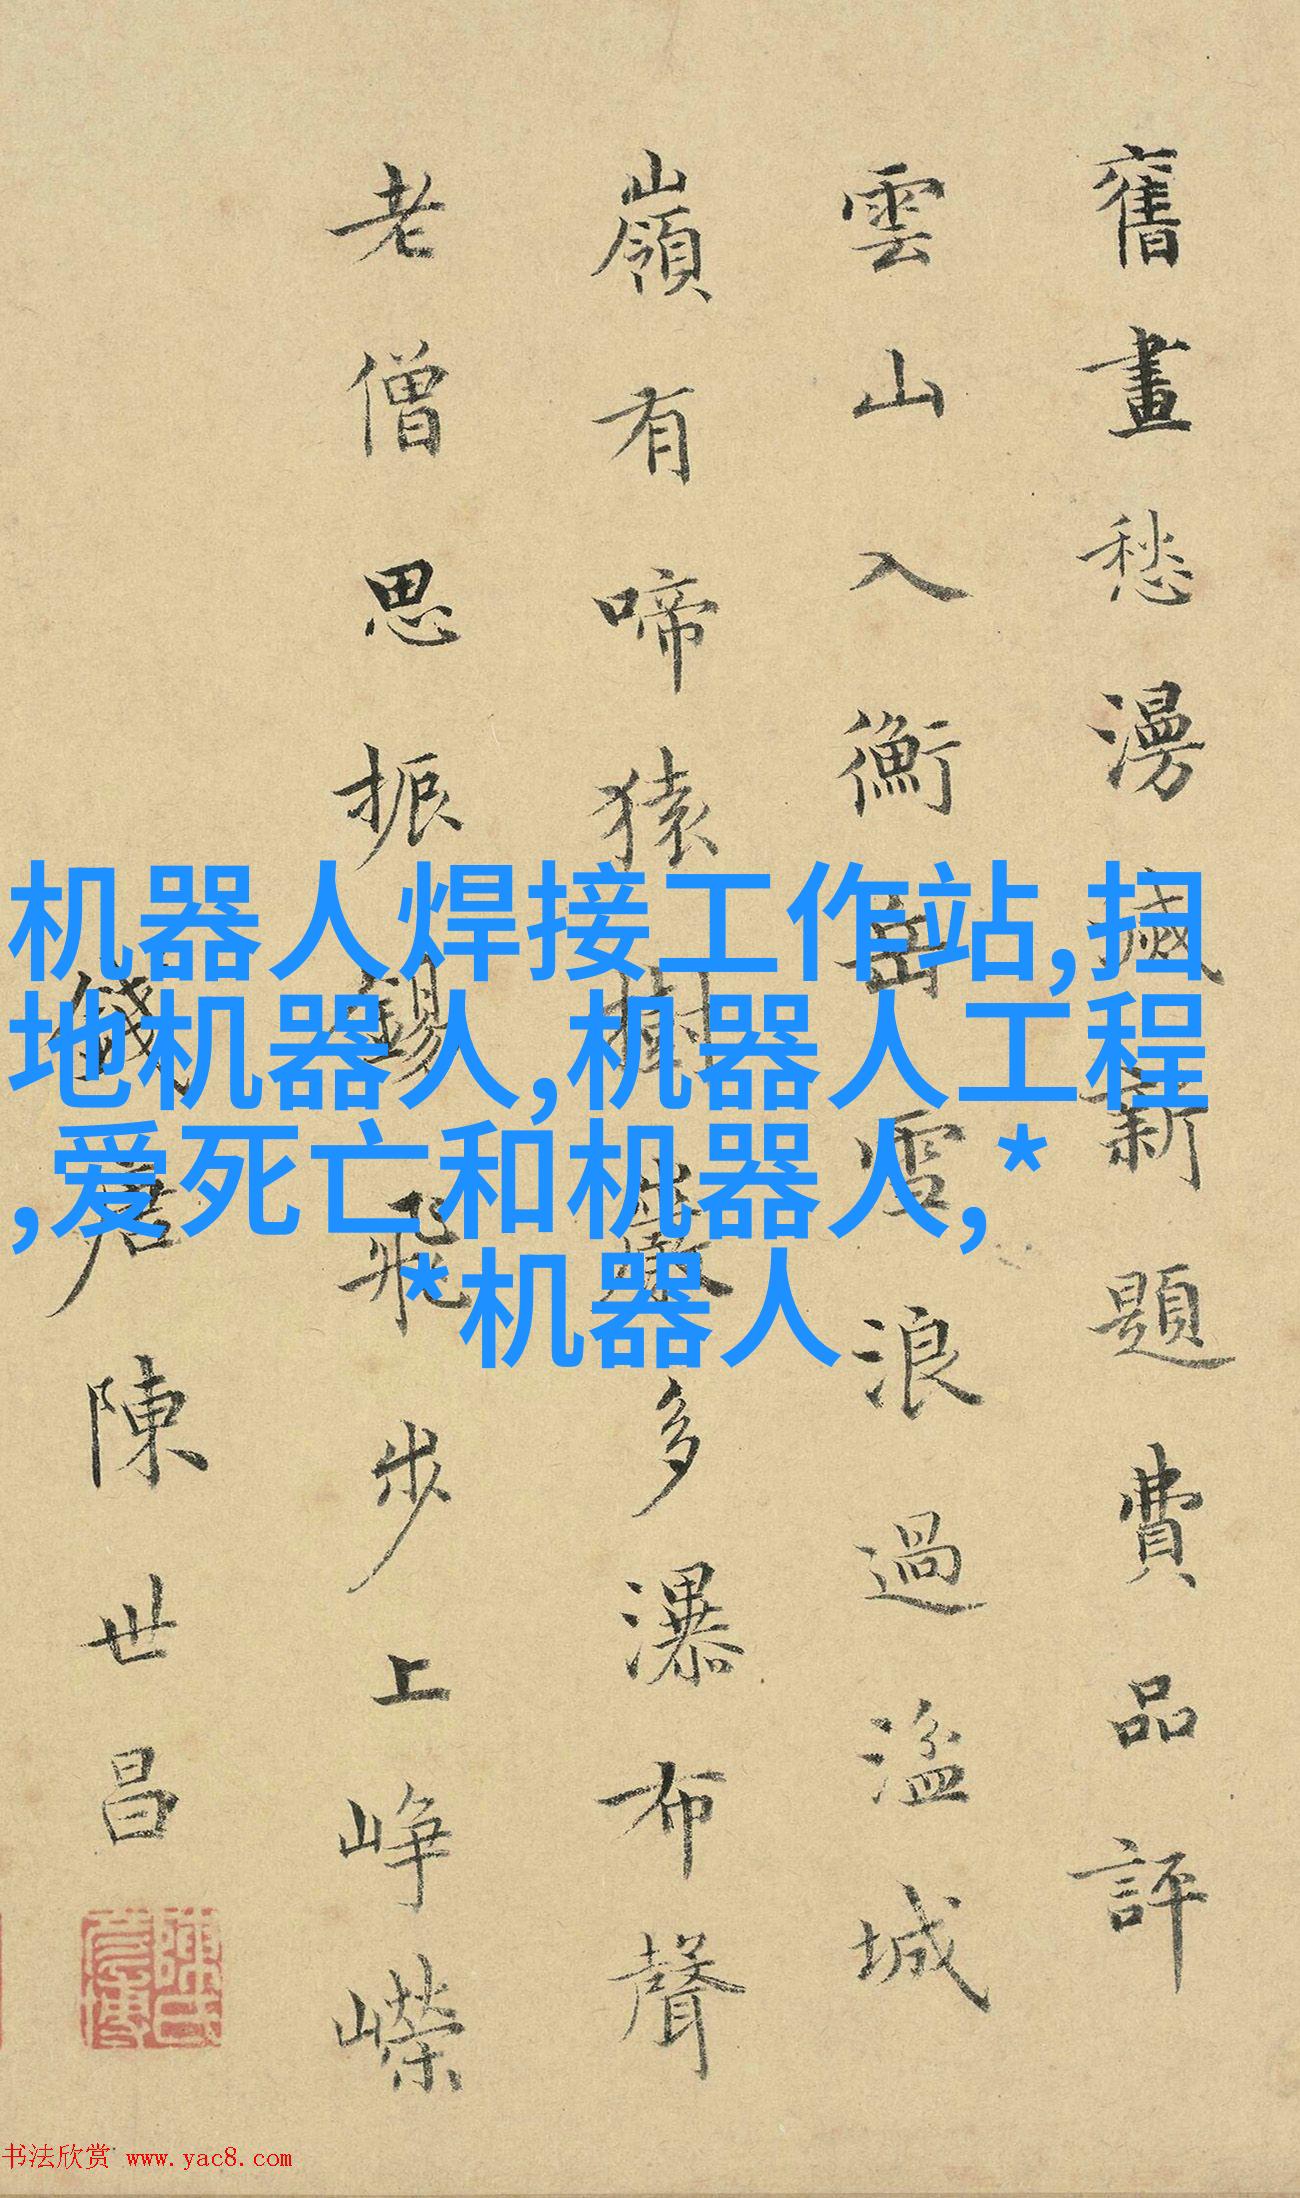 舊畫愁漫滅新題費品評
雲山入衡岳雪浪過溢城
嶺有啼猿樹巖多瀑布聲
老僧思振錫飛步上崢嶸
錢唐陳世昌
机器人焊接工作站,扫
地机器人,机器人工程
,爱死亡和机器人,*
*机器人
书法欣赏 www.yac8.com